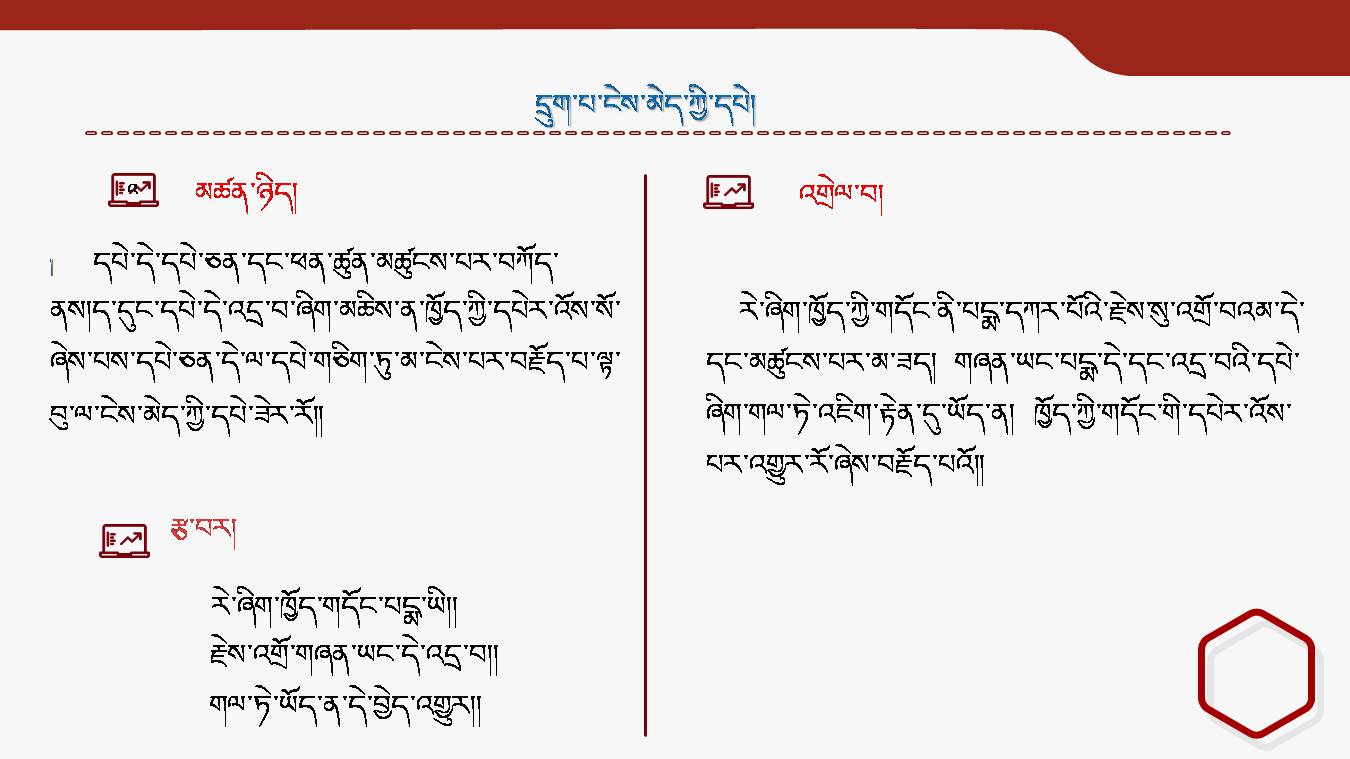 དྲུག་པ་ངེས་མེད་ཀྱི་དཔེ།
མཚན་ཉིད།
།    དཔེ་དེ་དཔེ་ཅན་དང་ཕན་ཚུན་མཚུངས་པར་བཀོད་
ནས།ད་དུང་དཔེ་དེ་འདྲ་བ་ཞིག་མཆིས་ན་ཁྱོད་ཀྱི་དཔེར་འོས་སོ་
ཞེས་པས་དཔེ་ཅན་དེ་ལ་དཔེ་གཅིག་ཏུ་མ་ངེས་པར་བརྗོད་པ་ལྟ་
བུ་ལ་ངེས་མེད་ཀྱི་དཔེ་ཟེར་རོ།།
རྩ་བར།
རེ་ཞིག་ཁྱོད་གདོང་པདྨ་ཡི།།
རྗེས་འགྲོ་གཞན་ཡང་དེ་འདྲ་བ།།
གལ་ཏེ་ཡོད་ན་དེ་བྱེད་འགྱུར།།
འགྲེལ་བ།
རེ་ཞིག་ཁྱོད་ཀྱི་གདོང་ནི་པདྨ་དཀར་པོའི་རྗེས་སུ་འགྲོ་བའམ་དེ་
དང་མཚུངས་པར་མ་ཟད།  གཞན་ཡང་པདྨ་དེ་དང་འདྲ་བའི་དཔེ་
ཞིག་གལ་ཏེ་འཇིག་རྟེན་དུ་ཡོད་ན།  ཁྱོད་ཀྱི་གདོང་གི་དཔེར་འོས་
པར་འགྱུར་རོ་ཞེས་བརྗོད་པའོ།།